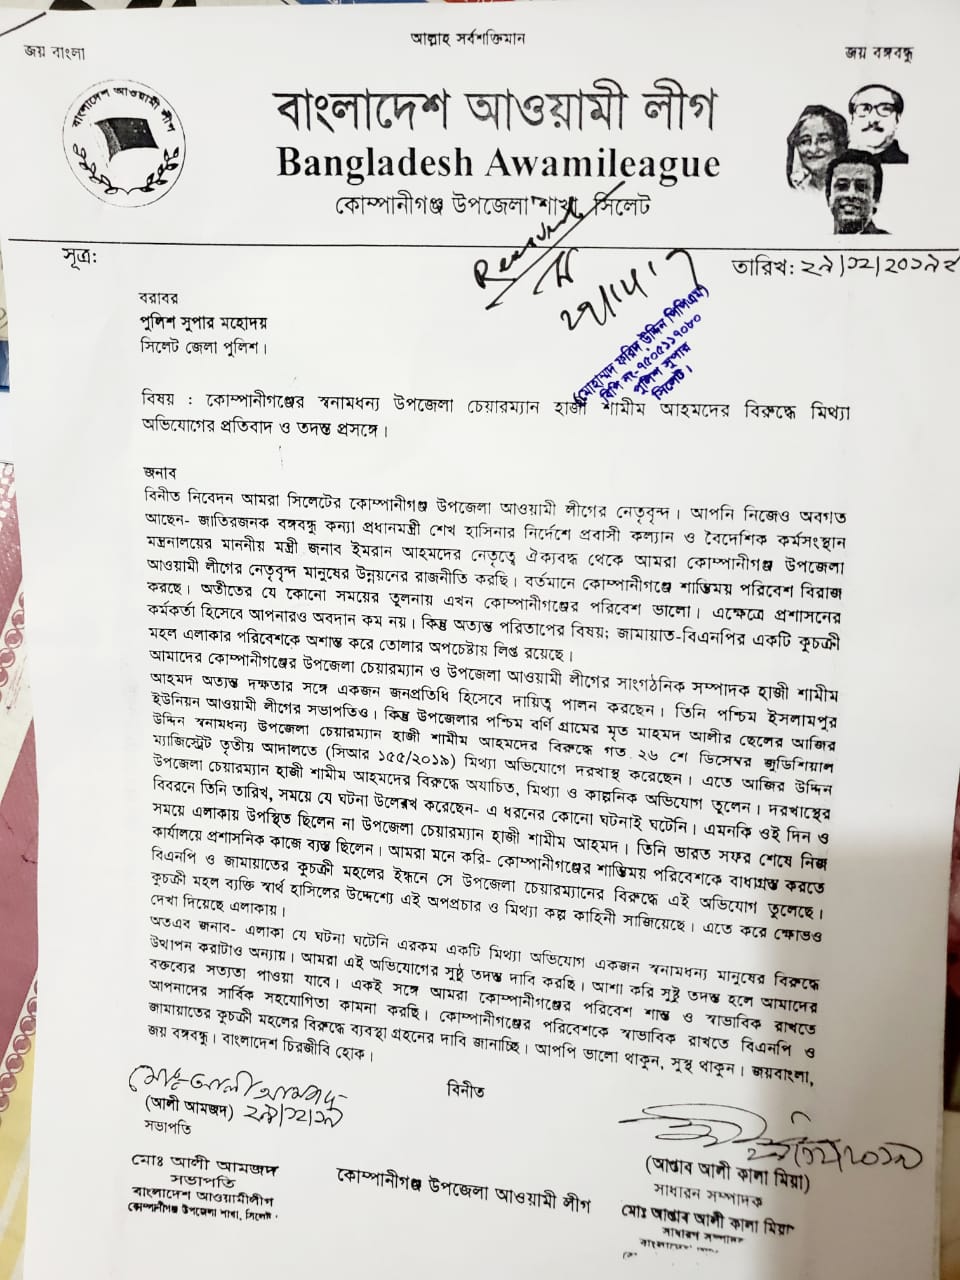 আল্লাহ সর্বশক্তিমান
জয় বাংলা
জয় বঙ্গবন্ধু
বাংলাদেশ আওয়ামী লীগ
বাংলাদেশ আওয়ামী লীগ
Bangladesh Awamileague
কোম্পানীগঞ্জ উপজেলা শাখা, সিলেট
সূত্র:
তারিখ: ২৯/১২/২০১৯
বরাবর
পুলিশ সুপার মহোদয়
সিলেট জেলা পুলিশ।
(মোহাম্মদ ফরিদ উদ্দিন পিপিএম)
বিপি নং-৭৫০৫১১৭০৮০
পুলিশ সুপার
সিলেট।
বিষয় : কোম্পানীগঞ্জের স্বনামধন্য উপজেলা চেয়ারম্যান হাজী শামীম আহমদের বিরুদ্ধে মিথ্যা
অভিযোগের প্রতিবাদ ও তদন্ত প্রসঙ্গে।
জনাব
বিনীত নিবেদন আমরা সিলেটের কোম্পানীগঞ্জ উপজেলা আওয়ামী লীগের নেতৃবৃন্দ। আপনি নিজেও অবগত
আছেন- জাতিরজনক বঙ্গবন্ধু কন্যা প্রধানমন্ত্রী শেখ হাসিনার নির্দেশে প্রবাসী কল্যান ও বৈদেশিক কর্মসংস্থান
মন্ত্রনালয়ের মাননীয় মন্ত্রী জনাব ইমরান আহমদের নেতৃত্বে ঐক্যবদ্ধ থেকে আমরা কোম্পানীগঞ্জ উপজেলা
আওয়ামী লীগের নেতৃবৃন্দ মানুষের উন্নয়নের রাজনীতি করছি। বর্তমানে কোম্পানীগঞ্জে শান্তিময় পরিবেশ বিরাজ
করছে। অতীতের যে কোনো সময়ের তুলনায় এখন কোম্পানীগঞ্জের পরিবেশ ভালো। এক্ষেত্রে প্রশাসনের
কর্মকর্তা হিসেবে আপনারও অবদান কম নয়। কিন্তু অত্যন্ত পরিতাপের বিষয়; জামায়াত-বিএনপির একটি কুচক্রী
মহল এলাকার পরিবেশকে অশান্ত করে তোলার অপচেষ্টায় লিপ্ত রয়েছে।
আমাদের কোম্পানীগঞ্জের উপজেলা চেয়ারম্যান ও উপজেলা আওয়ামী লীগের সাংগঠনিক সম্পাদক হাজী শামীম
আহমদ অত্যন্ত দক্ষতার সঙ্গে একজন জনপ্রতিধি হিসেবে দায়িত্ব পালন করছেন। তিনি পশ্চিম ইসলামপুর
ইউনিয়ন আওয়ামী লীগের সভাপতিও। কিন্তু উপজেলার পশ্চিম বর্ণি গ্রামের মৃত মাহমদ আলীর ছেলের আজির
উদ্দিন স্বনামধন্য উপজেলা চেয়ারম্যান হাজী শামীম আহমদের বিরুদ্ধে গত ২৬ শে ডিসেম্বর জুডিশিয়াল
ম্যাজিস্ট্রেট তৃতীয় আদালতে (সিআর ১৫৫/২০১৯) মিথ্যা অভিযোগে দরখাস্থ করেছেন। এতে আজির উদ্দিন
উপজেলা চেয়ারম্যান হাজী শামীম আহমদের বিরুদ্ধে অযাচিত, মিথ্যা ও কাল্পনিক অভিযোগ তুলেন। দরখাস্থের
বিবরনে তিনি তারিখ, সময়ে যে ঘটনা উলেখ করেছেন- এ ধরনের কোনো ঘটনাই ঘটেনি। এমনকি ওই দিন ও
সময়ে এলাকায় উপস্থিত ছিলেন না উপজেলা চেয়ারম্যান হাজী শামীম আহমদ। তিনি ভারত সফর শেষে নিজ
কার্যালয়ে প্রশাসনিক কাজে ব্যস্ত ছিলেন। আমরা মনে করি- কোম্পানীগঞ্জের শান্তিময় পরিবেশকে বাধাগ্রস্ত করতে
বিএনপি ও জামায়াতের কুচক্রী মহলের ইন্ধনে সে উপজেলা চেয়ারম্যানের বিরুদ্ধে এই অভিযোগ তুলেছে।
কুচক্রী মহল ব্যক্তি স্বার্থ হাসিলের উদ্দেশ্যে এই অপপ্রচার ও মিথ্যা কল্প কাহিনী সাজিয়েছে। এতে করে ক্ষোভও
দেখা দিয়েছে এলাকায়।
অতএব জনাব- এলাকা যে ঘটনা ঘটেনি এরকম একটি মিথ্যা অভিযোগ একজন স্বনামধন্য মানুষের বিরুদ্ধে
উত্থাপন করাটাও অন্যায়। আমরা এই অভিযোগের সুষ্ঠু তদন্ত দাবি করছি। আশা করি সুষ্টু তদন্ত হলে আমাদের
বক্তব্যের সত্যতা পাওয়া যাবে। একই সঙ্গে আমরা কোম্পানীগঞ্জের পরিবেশ শান্ত ও স্বাভাবিক রাখতে
আপনাদের সার্বিক সহযোগিতা কামনা করছি। কোম্পানীগঞ্জের পরিবেশকে স্বাভাবিক রাখতে বিএনপি ও
জামায়াতের কুচক্রী মহলের বিরুদ্ধে ব্যবস্থা গ্রহনের দাবি জানাচ্ছি। আপপি ভালো থাকুন, সুস্থ থাকুন। জয়বাংলা,
জয় বঙ্গবন্ধু। বাংলাদেশ চিরজীবি হোক।
বিনীত
মোঃ আলী আমজদ
(আলী আমজদ) ২৯/১২/১৯
সভাপতি
মোঃ আলী আমজদ
সভাপতি
বাংলাদেশ আওয়ামীলীগ
কোম্পানীগঞ্জ উপজেলা শাখা, সিলেট
কোম্পানীগঞ্জ উপজেলা আওয়ামী লীগ
(আপ্তাব আলী কালা মিয়া)
সাধারন সম্পাদক
মোঃ আপ্তাব আলী কালা মিয়া
সাধারণ সম্পাদক